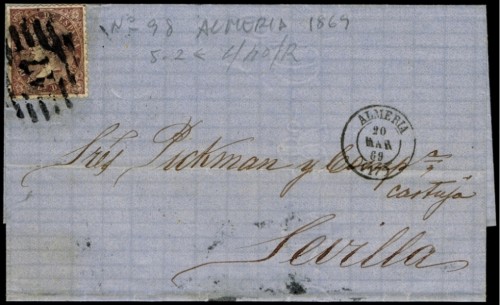 Nº 98 ALMERIA 1869
ALMERIA
20
MAR
69
Sres Pickman y Compª
Cartuja
Sevilla